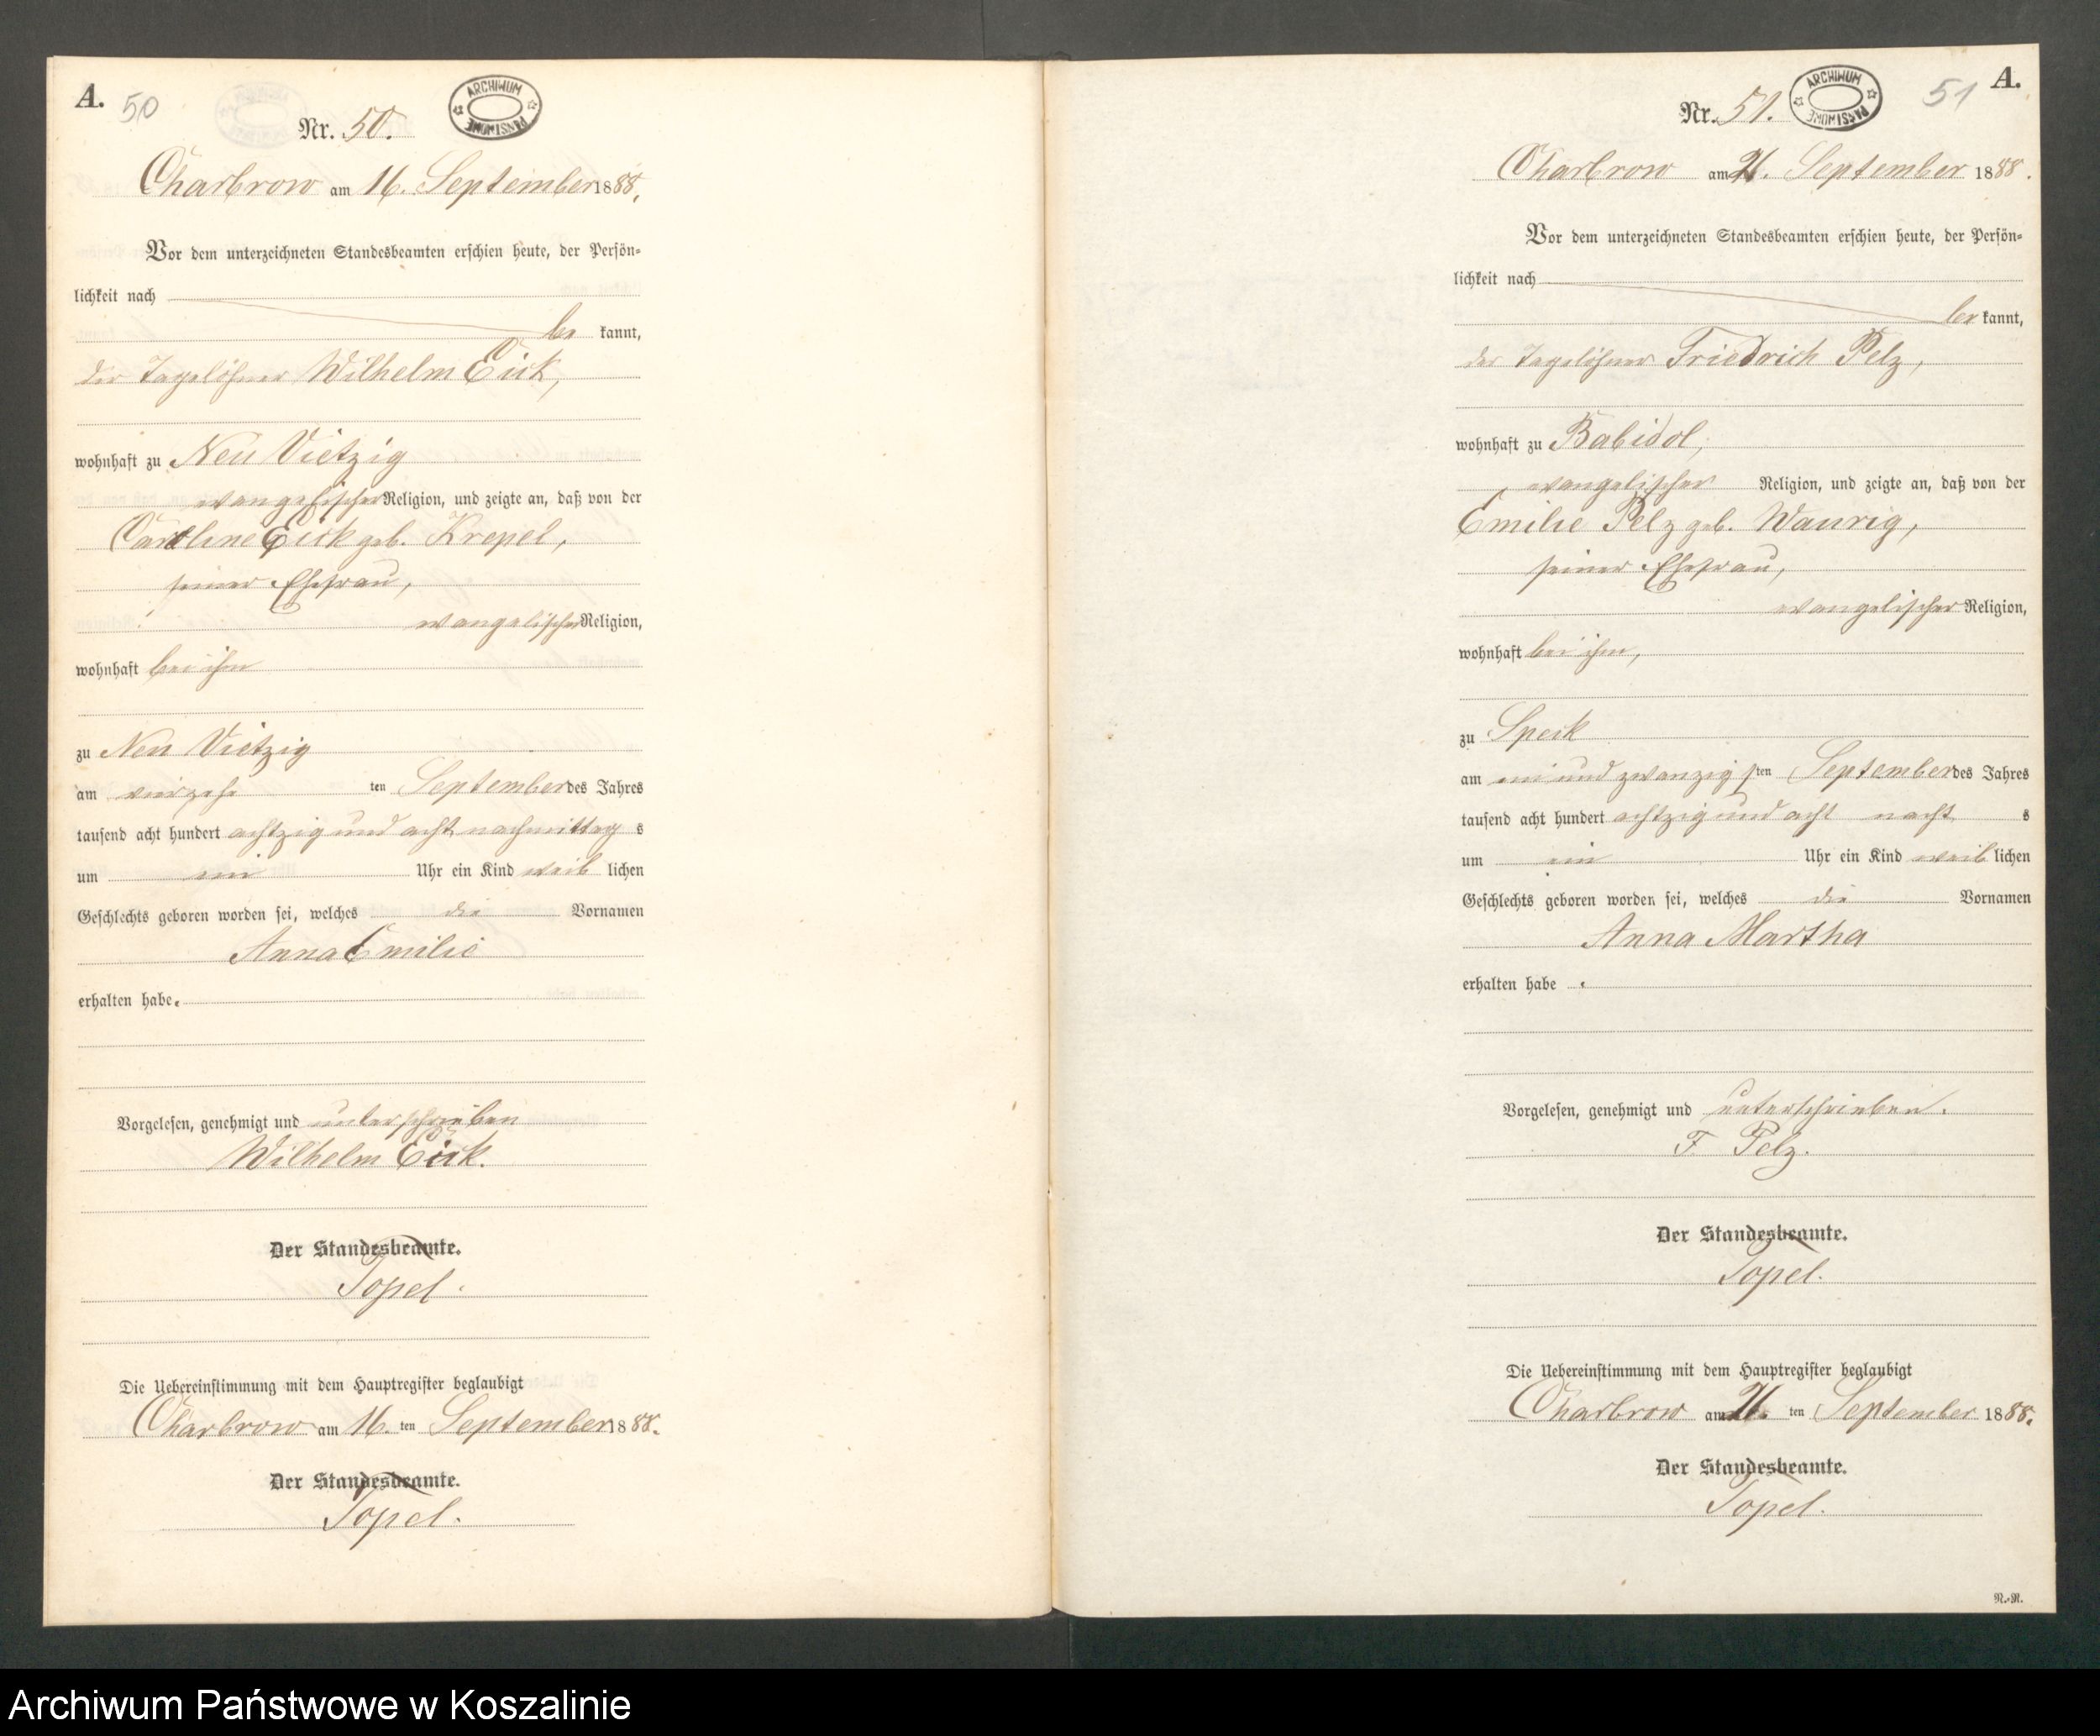 A. 50
Nr. 50.
ARCHIWUM PAŃSTWOWE
Charbrow am 16. September 1888.
Vor dem unterzeichneten Standesbeamten erschien heute, der Persön=
lichkeit nach
be kannt,
der Tagelöhner Wilhelm Eick,
wohnhaft zu Neu Vietzig
evangelischer Religion, und zeigte an, daß von der
Caroline Eick geb. Krepel,
seiner Ehefrau,
evangelischer Religion,
wohnhaft bei ihm
zu Neu Vietzig
am vierzehn ten September des Jahres
tausend acht hundert achtzig und acht nachmittag s
um ein Uhr ein Kind weib lichen
Geschlechts geboren worden sei, welches die Vornamen
Anna Emilie
erhalten habe.
Vorgelesen, genehmigt und unterschrieben
Wilhelm Eick.
Der Standesbeamte.
Topel.
Die Uebereinstimmung mit dem Hauptregister beglaubigt
Charbrow am 16. ten September 1888.
Der Standesbeamte.
Topel.
51 A.
Nr. 51.
ARCHIWUM PAŃSTWOWE
Charbrow am 21. September 1888.
Vor dem unterzeichneten Standesbeamten erschien heute, der Persön=
lichkeit nach
be kannt,
der Tagelöhner Friedrich Pelz,
wohnhaft zu Babidol,
evangelischer Religion, und zeigte an, daß von der
Emilie Pelz geb. Waurig,
seiner Ehefrau,
evangelischer Religion,
wohnhaft bei ihm,
zu Speck
am ein und zwanzigsten September des Jahres
tausend acht hundert achtzig und acht nacht s
um ein Uhr ein Kind weib lichen
Geschlechts geboren worden sei, welches die Vornamen
Anna Martha
erhalten habe.
Vorgelesen, genehmigt und unterschrieben.
F Pelz.
Der Standesbeamte.
Topel.
Die Uebereinstimmung mit dem Hauptregister beglaubigt
Charbrow am 21. ten September 1888.
Der Standesbeamte.
Topel.
R.-R.
Archiwum Państwowe w Koszalinie